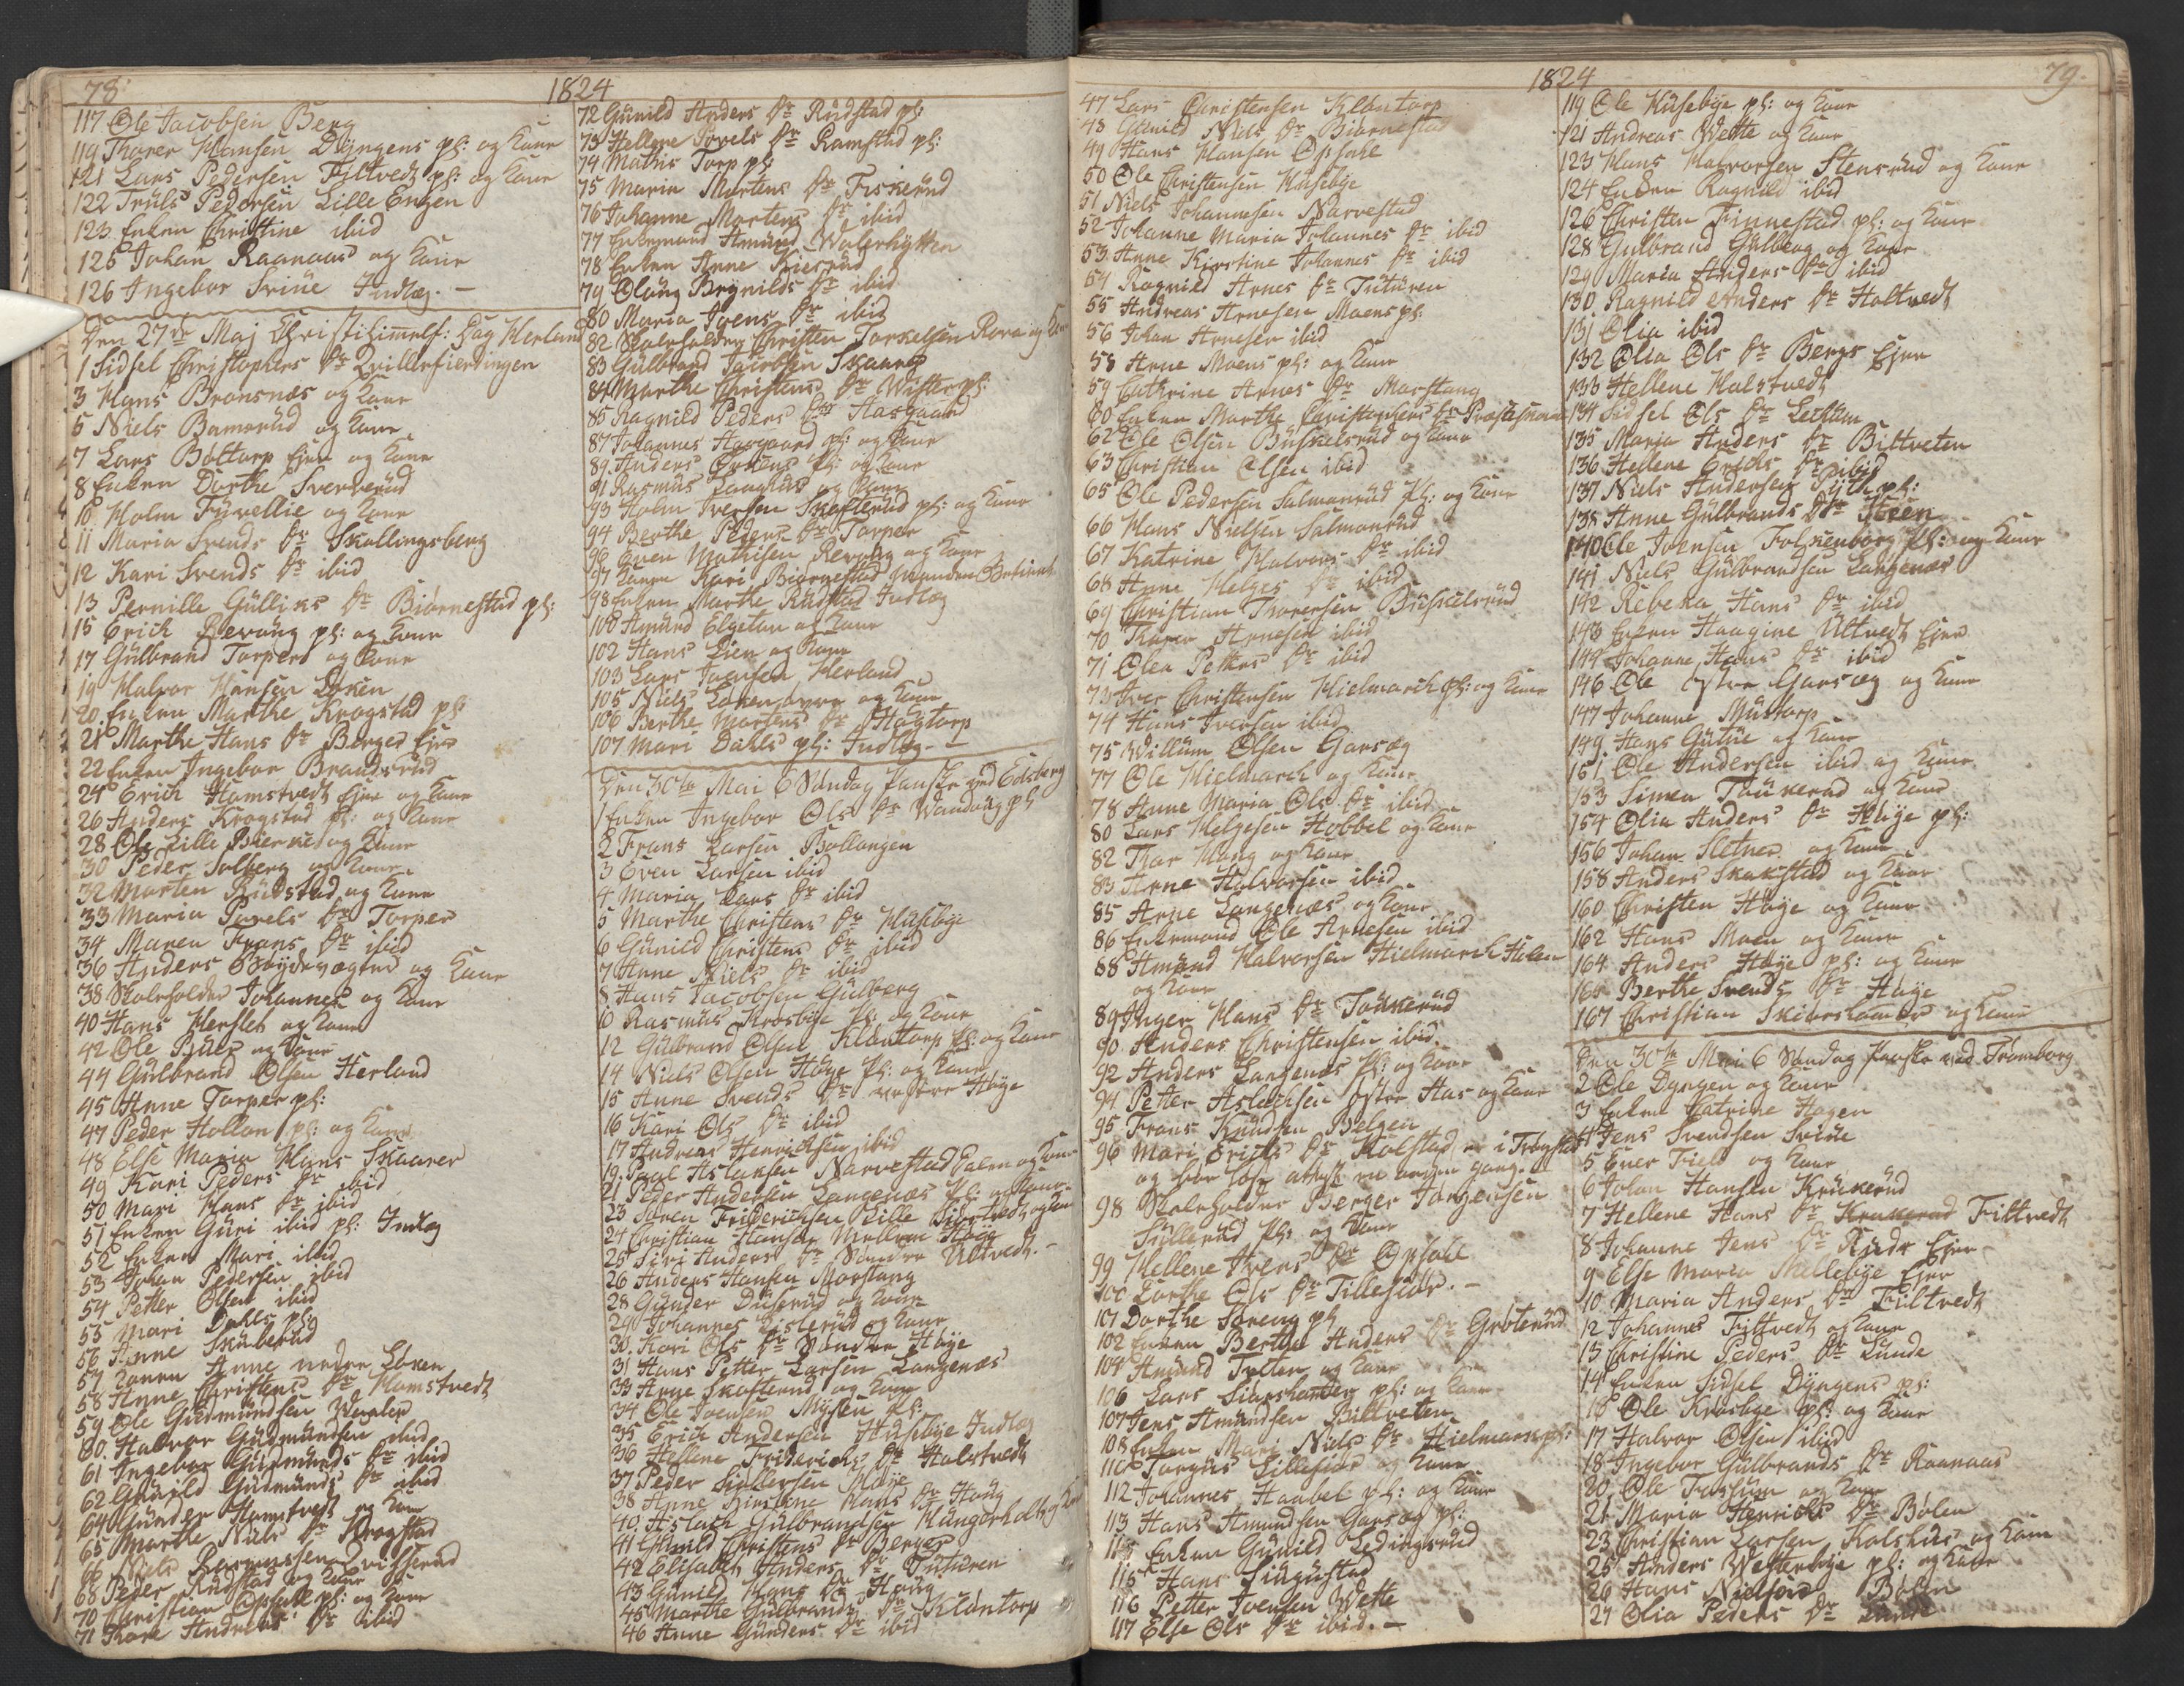 78
1824
117 Ole Jacobsen Berg
119 Thorer Hansen Dyngens pl: og Kone
121 Lars Pedersen Filtvedt pl: og Kone
122 Truls Pedersen Lille Engen
123 Enken Christine ibid
125 Johan Raanaas og Kone
126 Ingebor Sviue Indlæg. —
Den 27de Maj Christi Himmelf: Dag Herland
1 Sidsel Christophers Dr
3 Hans Bronsnæs og Kone
5 Niels Bamerud og Kone
7 Lars Boltorp Ejer og Kone
8 Enken Dorthe Sververud
10 Holm Furellie og Kone
11 Maria Svends Dr Skallingsberg
12 Kari Svends Dr ibid
13 Pernille Gulliks Dr Biørnestad pl:
15 Erich Revoug pl: og Kone
17 Gulbrand Torper og Kone
19 Halvor Hansen Løken
20 Enken Marthe Krogstad pl:
21 Marthe Hans Dr Berger Ejer
22 Enken Ingebor Brandsrud
24 Erich Hamstvedt Ejer og Kone
26 Anders Krogstad pl: og Kone
28 Ole Lille Bierke og Kone
30 Peder Solberg og Kone
32 Morten Rudstad og Kone
33 Maria Povels Dr Torper
34 Maren Frans Dr ibid
36 Anders og Kone
38 Skoleholder Johannes og Kone
40 Hans Herslet og Kone
42 Ole Buer og Kone
44 Gulbrand Olsen Herland
45 Anne Torper pl:
47 Peder Hollon pl: og Kone
48 Else Maria Hans Skaarer
49 Kari Peders Dr ibid
50 Mari Hans Dr ibid
51 Enken Guri ibid pl: Indlæg
52 Enken Mari ibid
53 Johan Pedersen ibid
54 Petter Olsen ibid
55 Mari Dahls pl:
56 Anne Skuberud
57 Konen Anne nedre Løken
58 Anne Christens Dr Hamstvedt
59 Ole Gudmundsen
60 Halvor Gudmundsen ibid
61 Ingebor Gudmunds Dr ibid
62 Gunild Gudmunds Dr ibid
64 Gunder Hamstvedt og Kone
65 Marthe Niels Dr Krogstad
66 Niels Rasmussen
68 Peder Rudstad og Kone
70 Christian Opsahl pl: og Kone
71 Thore Andreas Dr ibid
72 Gunild Anders Dr Rudstad pl:
73 Hellene Povels Dr Ramstad pl:
74 Mathis Torp pl:
75 Maria Mortens Dr Fiskerud
76 Johanne Mortens Dr ibid
77 Enkemand Amund
78 Enken Anne Kiserud
79 Oloug Brynilds Dr ibid
80 Maria Joens Dr ibid
82 Skoleholder Christen Torkelsen og Kone
83 Gulbrand Jacobsen Skaarer
84 Marthe Christens Dr pl:
85 Ragnild Peders Dr Aasgaard
87 Johannes Aasgaard pl: og Kone
89 Anders pl: og Kone
91 Rasmus og Kone
93 Holm Iversen Skofterud pl: og Kone
94 Berthe Peders Dr Torper
96 Even Mathisen Revoug og Kone
97 Konen Kari Biørnestad
98 Enken Marthe Rudstad Indlæg
100 Amund Elgetun og Kone
102 Hans Lien og Kone
103 Lars Joensen Herland
105 Niels Løken øvre og Kone
106 Berthe Mortens Dr Hagtorp
107 Mari Dahls pl: Indlæg. —
Den 30te Mai 6 Søndag Paaske ved Edsberg
1 Enken Ingebor Ols Dr pl:
2 Frans Larsen Bollangen
3 Even Larsen ibid
4 Maria Lars Dr ibid
5 Marthe Christens Dr Huseby
6 Gunild Christens Dr ibid
7 Anne Niels Dr ibid
8 Hans Jacobsen Gulberg
10 Rasmus Krosbye pl: og Kone
12 Gulbrand Olsen Kløntorp pl: og Kone
14 Niels Olsen Høye pl: og Kone
15 Anne Svends Dr vestre Høye
16 Kari Ols Dr ibid
17 Andreas Henrichsen ibid
19 Paal Aslaksen Narvestad og Kone
21 Peder Andersen Langenæs pl: og Kone
23 Søren Friderichsen Lille og Kone
24 Christian Hansen Mellem Høye
25 Siri Anders Dr Søndre Ultvedt. —
26 Anders Hansen Morstang
28 Gunder Duserud og Kone
29 Johannes Lislerud og Kone
30 Kari Ols Dr Søndre Høye
31 Hans Petter Larsen Langenæs
33 Arne Skofterud og Kone
34 Ole Joensen Mysen pl:
35 Erich Andersen Husebye Indlæg
36 Hellene Friderichs Dr Halstvedt
37 Peder Høye
38 Anne Kirstine Hans Dr Houg
40 Aslach Gulbrandsen og Kone
41 Gunild Christens Dr Berger
42 Elisabeth Anders Dr Tuturen
43 Gunild Hans Dr Houg
45 Marthe Gulbrands Dr Kløntorp
46 Anne Gunders Dr ibid
1824
79.
47 Lars Christensen Kløntorp
48 Gunild Niels Dr Biørnestad
49 Hans Hansen Opsahl
50 Ole Christensen Husebye
51 Niels Johannesen Narvestad
52 Johanne Maria Johannes Dr ibid
53 Anne Kirstine Johannes Dr ibid
54 Ragnild Arnes Dr Tuturen
55 Andreas Arnesen Moens pl:
56 Johan Arnesen ibid
58 Arne Moens pl: og Kone
59 Cathrine Arnes Dr Morstang
60 Enken Marthe Christophers Dr
62 Ole Olsen Buskelsrud og Kone
63 Christian Olsen ibid
65 Ole Pedersen Salmonrud pl: og Kone
66 Hans Nielsen Salmonrud
67 Katrine Halvors Dr ibid
68 Anne Helges Dr ibid
69 Christian Thoresen Buskelsrud
70 Thore Arnesen ibid
71 Olea Petters Dr ibid
73 Iver Christensen Hielmarch pl: og Kone
74 Hans Iversen ibid
75 Willum Olsen Garseg
77 Ole Hielmarch og Kone
78 Anne Maria Ols Dr ibid
80 Lars Helgesen Hobbel og Kone
82 Thor Houg og Kone
83 Arne Halvorsen ibid
85 Arne Langenæs og Kone
86 Enkemand Ole Arnesen ibid
88 Amund Halvorsen Hielmarch Holen
og Kone
89 Inger Hans Dr Toukerud
90 Anders Christensen ibid.
92 Anders Langenæs pl: og Kone
94 Petter Aslachsen østre Aas og Kone
95 Frans Knudsen Belgen
96 Mari Erichs Dr Kolstad er i Trøgstad
98 Skoleholder Berger Jørgensen
Sullerud pl: og Kone
99 Hellene Ivers Dr Opsahl
100 Dorthe Ols Dr Tillesiør. —
101 Dorthe Streng pl
102 Enken Berthe Anders Dr Grøterud
104 Amund Treter og Kone
106 Lars pl: og Kone
107 Jens Amundsen Biltveten
108 Enken Mari Niels Dr Hielmark pl:
110 Torgus Lillesiør og Kone
112 Johannes Haabel pl: og Kone
113 Hans Amundsen Garseg pl:
114 Enken Gunild Ledingsrud
115 Hans
116 Petter Joensen Wette
117 Else Ols Dr ibid. —
119 Ole Husebye pl: og Kone
121 Andreas Wette og Kone
123 Hans Halvorsen Stensrud og Kone
124 Enken Ragnild ibid
126 Christen Finnestad pl: og Kone
128 Gulbrand Gulberg og Kone
129 Maria Anders Dr ibid
130 Ragnild Anders Dr Holtvedt
131 Olia ibid
132 Olia Ols Dr Bergs Ejer
133 Hellene Halstvedt
134 Sidsel Ols Dr Lekum
135 Maria Anders Dr Biltveten
136 Hellene Erichs Dr ibid
137 Niels Andersen pl:
138 Anne Gulbrands Dr Steen
140 Ole Joensen Folkenborg pl: og Kone
141 Niels Gulbrandsen Langenæs
142 Rebeka Hans Dr ibid
143 Enken Haagine Ultvedt Ejer
144 Johanne Hans Dr ibid
146 Ole østre Garseg og Kone
147 Johanne Mustorp
149 Hans Gutue og Kone
151 Ole Andersen ibid og Kone
153 Simen Toukerud og Kone
154 Olia Anders Dr Høye pl:
156 Johan Sletner og Kone
158 Anders Skakstad og Kone
160 Christen Høye og Kone
162 Hans Moen og Kone
164 Anders Høye pl: og Kone
165 Berthe Svends Dr Høye
167 Christian Skiørshamer og Kone
Den 30te Mai 6 Søndag Paaske ved Trømborg
2 Ole Dyngen og Kone
3 Enken Katrine Hagen
4 Jens Svendsen Sviue
5 Ener Field og Kone
6 Johan Hansen Krukerud
7 Hellene Hans Dr Krukerud Filtvedt
8 Johanne Jens Dr Ruds Ejer
9 Else Maria Mellebye Ejer
10 Maria Anders Dr Filtvedt
12 Johannes Filtvedt og Kone
13 Christine Peders Dr Lunde
14 Enken Sidsel Dyngens pl:
16 Ole Krosbye pl: og Kone
17 Halvor Olsen ibid
18 Ingebor Gulbrands Dr Raanaas
20 Ole Fossum og Kone
21 Maria Henrichs Dr Bølen
23 Christian Larsen Kolshus og Kone
25 Anders Westerbye pl: og Kone
26 Hans Nielsen Bølen
27 Olia Peders Dr Lunde